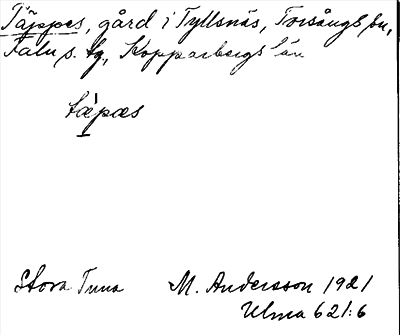 Täppes, gård i Tyllsnäs, Torsångs sn,
Falu s. tg, Kopparbergs län
tæ̀pæs
Stora Tuna M. Andersson 1921
Ulma 621:6